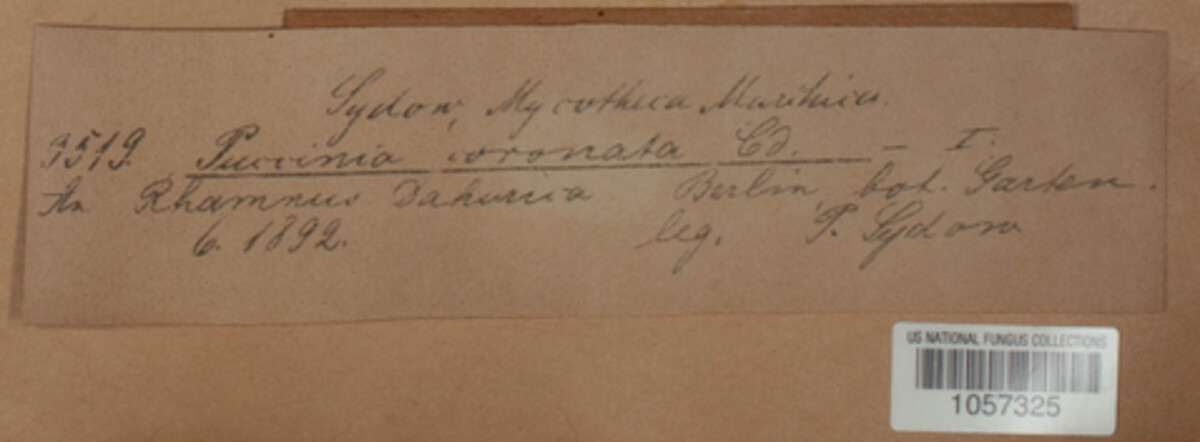 Sydow, Mycotheca Marchica.
3519. Puccinia coronata Cd. — I.
An Rhamnus Dahurica Berlin, bot. Garten.
6. 1892. leg. P. Sydow
US NATIONAL FUNGUS COLLECTIONS
1057325